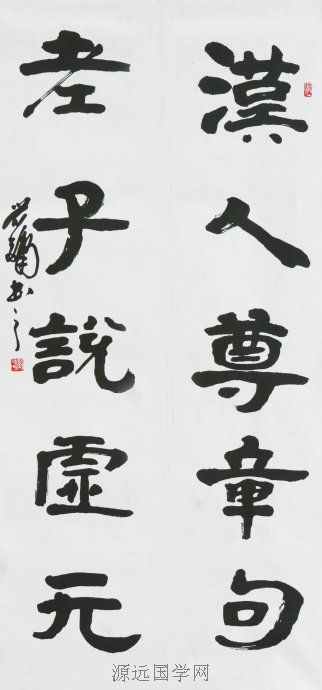 漢人尊章句
老子說虛元
书之
源远国学网